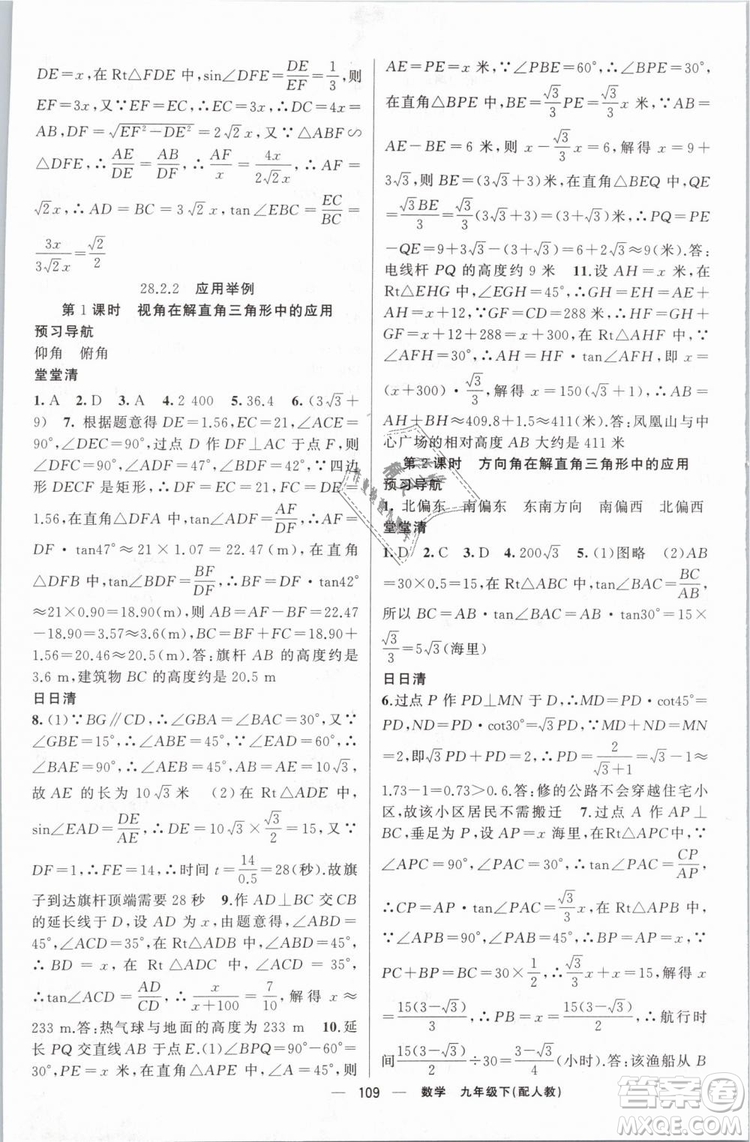 DE=x,在Rt△FDE中,sin∠DFE=DE/EF=1/3,则
EF=3x,又∵EF=EC,∴EC=3x,∴DC=4x=
AB,DF=√(EF²-DE²)=2√2x,又∵△ABF∽
△DFE,∴AE/DE=AB/DF,∴AF/x=4x/(2√2x),∴AF=
√2x,∴AD=BC=3√2x,tan∠EBC=EC/BC=
3x/(3√2x)=√2/2
28.2.2 应用举例
第1课时 视角在解直角三角形中的应用
预习导航
仰角 俯角
堂堂清
1.A 2.D 3.A 4.2 400 5.36.4 6.(3√3+
9) 7.根据题意得DE=1.56,EC=21,∠ACE=
90°,∠DEC=90°,过点D作DF⊥AC于点F,则
∠DFC=90°,∠ADF=47°,∠BDF=42°,∵四边
形DECF是矩形,∴DF=EC=21,FC=DE=
1.56,在直角△DFA中,tan∠ADF=AF/DF,∴AF=
DF·tan47°≈21×1.07=22.47(m),在直角
△DFB中,tan∠BDF=BF/DF,∴BF=DF·tan42°
≈21×0.90=18.90(m),则AB=AF-BF=22.47
-18.90=3.57≈3.6(m),BC=BF+FC=18.90+
1.56=20.46≈20.5(m).答:旗杆AB的高度约是
3.6 m,建筑物BC的高度约是20.5 m
日日清
8.(1)∵BG∥CD,∴∠GBA=∠BAC=30°,又∵
∠GBE=15°,∴∠ABE=45°,∵∠EAD=60°,∴
∠BAE=90°,∴∠AEB=45°,∴AB=AE=10√3,
故AE的长为10√3米 (2)在Rt△ADE中,
sin∠EAD=DE/AE,∴DE=10√3×√3/2=15,又∵
DF=1,∴FE=14,∴时间t=14/0.5=28(秒).故旗
子到达旗杆顶端需要28秒 9.作AD⊥BC交CB
的延长线于D,设AD为x,由题意得,∠ABD=
45°,∠ACD=35°,在Rt△ADB中,∠ABD=45°,
∴BD=x,在Rt△ADC中,∠ACD=35°,
∴tan∠ACD=AD/CD,∴x/(x+100)=7/10,解得x≈
233 m.答:热气球与地面的高度为233 m 10.延
长PQ交直线AB于点E.(1)∠BPQ=90°-60°=
AE=PE=x米,∵∠PBE=60°,∴∠BPE=30°,
在直角△BPE中,BE=√3/3PE=√3/3x米,∵AB=
AE-BE=6米,则x-√3/3x=6,解得x=9+
3√3,则BE=(3√3+3)米,在直角△BEQ中,QE
=√3/3BE=√3/3(3√3+3)=(3+√3)米,∴PQ=PE
-QE=9+3√3-(3+√3)=6+2√3≈9(米).答:
电线杆PQ的高度约9米 11.若设AH=x米,在
Rt△EHG中,∵∠GEH=45°,∴GH=EG+
AH=x,∵GF=CD=288,∴HF=GH+GF=x+
288+12=x+300,在Rt△AHF中,∵∠AFH=
30°,∴AH=HF·tan∠AFH=HF·√3/3,即x=
(x+300)·√3/3,解得x=150(√3+1),∴AB=
AH+BH≈409.8+1.5≈411(米).答:凤凰山与中
心广场的相对高度AB大约是411米
第2课时 方向角在解直角三角形中的应用
预习导航
1.北偏东 南偏东 东南方向 南偏西 北偏西
堂堂清
1.D 2.C 3.D 4.200√3 5.(1)图略 (2)AB
=30×0.5=15,在Rt△ABC中,tan∠BAC=BC/AB,
所以BC=AB·tan∠BAC=AB·tan30°=15×
√3/3=5√3(海里)
日日清
6.过点P作PD⊥MN于D,∴MD=PD·cot45°=
PD,ND=PD·cot30°=√3PD,∵MD+ND=MN
=2,即√3PD+PD=2,∴PD=2/(√3+1)=√3-1≈
1.73-1=0.73>0.6.答:修的公路不会穿越住宅小
区,故该小区居民不需搬迁 7.过点A作AP⊥
BC,垂足为P,设AP=x海里.在Rt△APC中,
∵∠APC=90°,∠PAC=30°,∴tan∠PAC=CP/AP,
∴CP=AP·tan∠PAC=√3/3x.在Rt△APB中,
∵∠APB=90°,∠PAB=45°,∴BP=AP=x.∵
PC+BP=BC=30×1/2,∴√3/3x+x=15,解得x
=15(3-√3)/2,∴PB=x=15(3-√3)/2,∴航行时
间:15(3-√3)/2÷30=(3-√3)/4(小时).答:该渔船从B
109 数学 九年级下(配人教)
答案圈